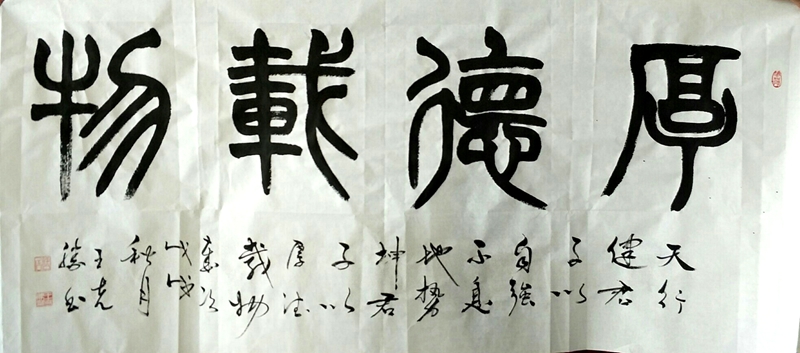 厚德載物
天行
健君
子以
自強
不息
地勢
坤君
子以
厚德
載物
歲次
戊戌
秋月
王克
勝書